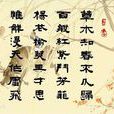 草木知春不久歸
百般紅紫鬥芳菲
楊花榆莢無才思
惟解漫天作雪飛